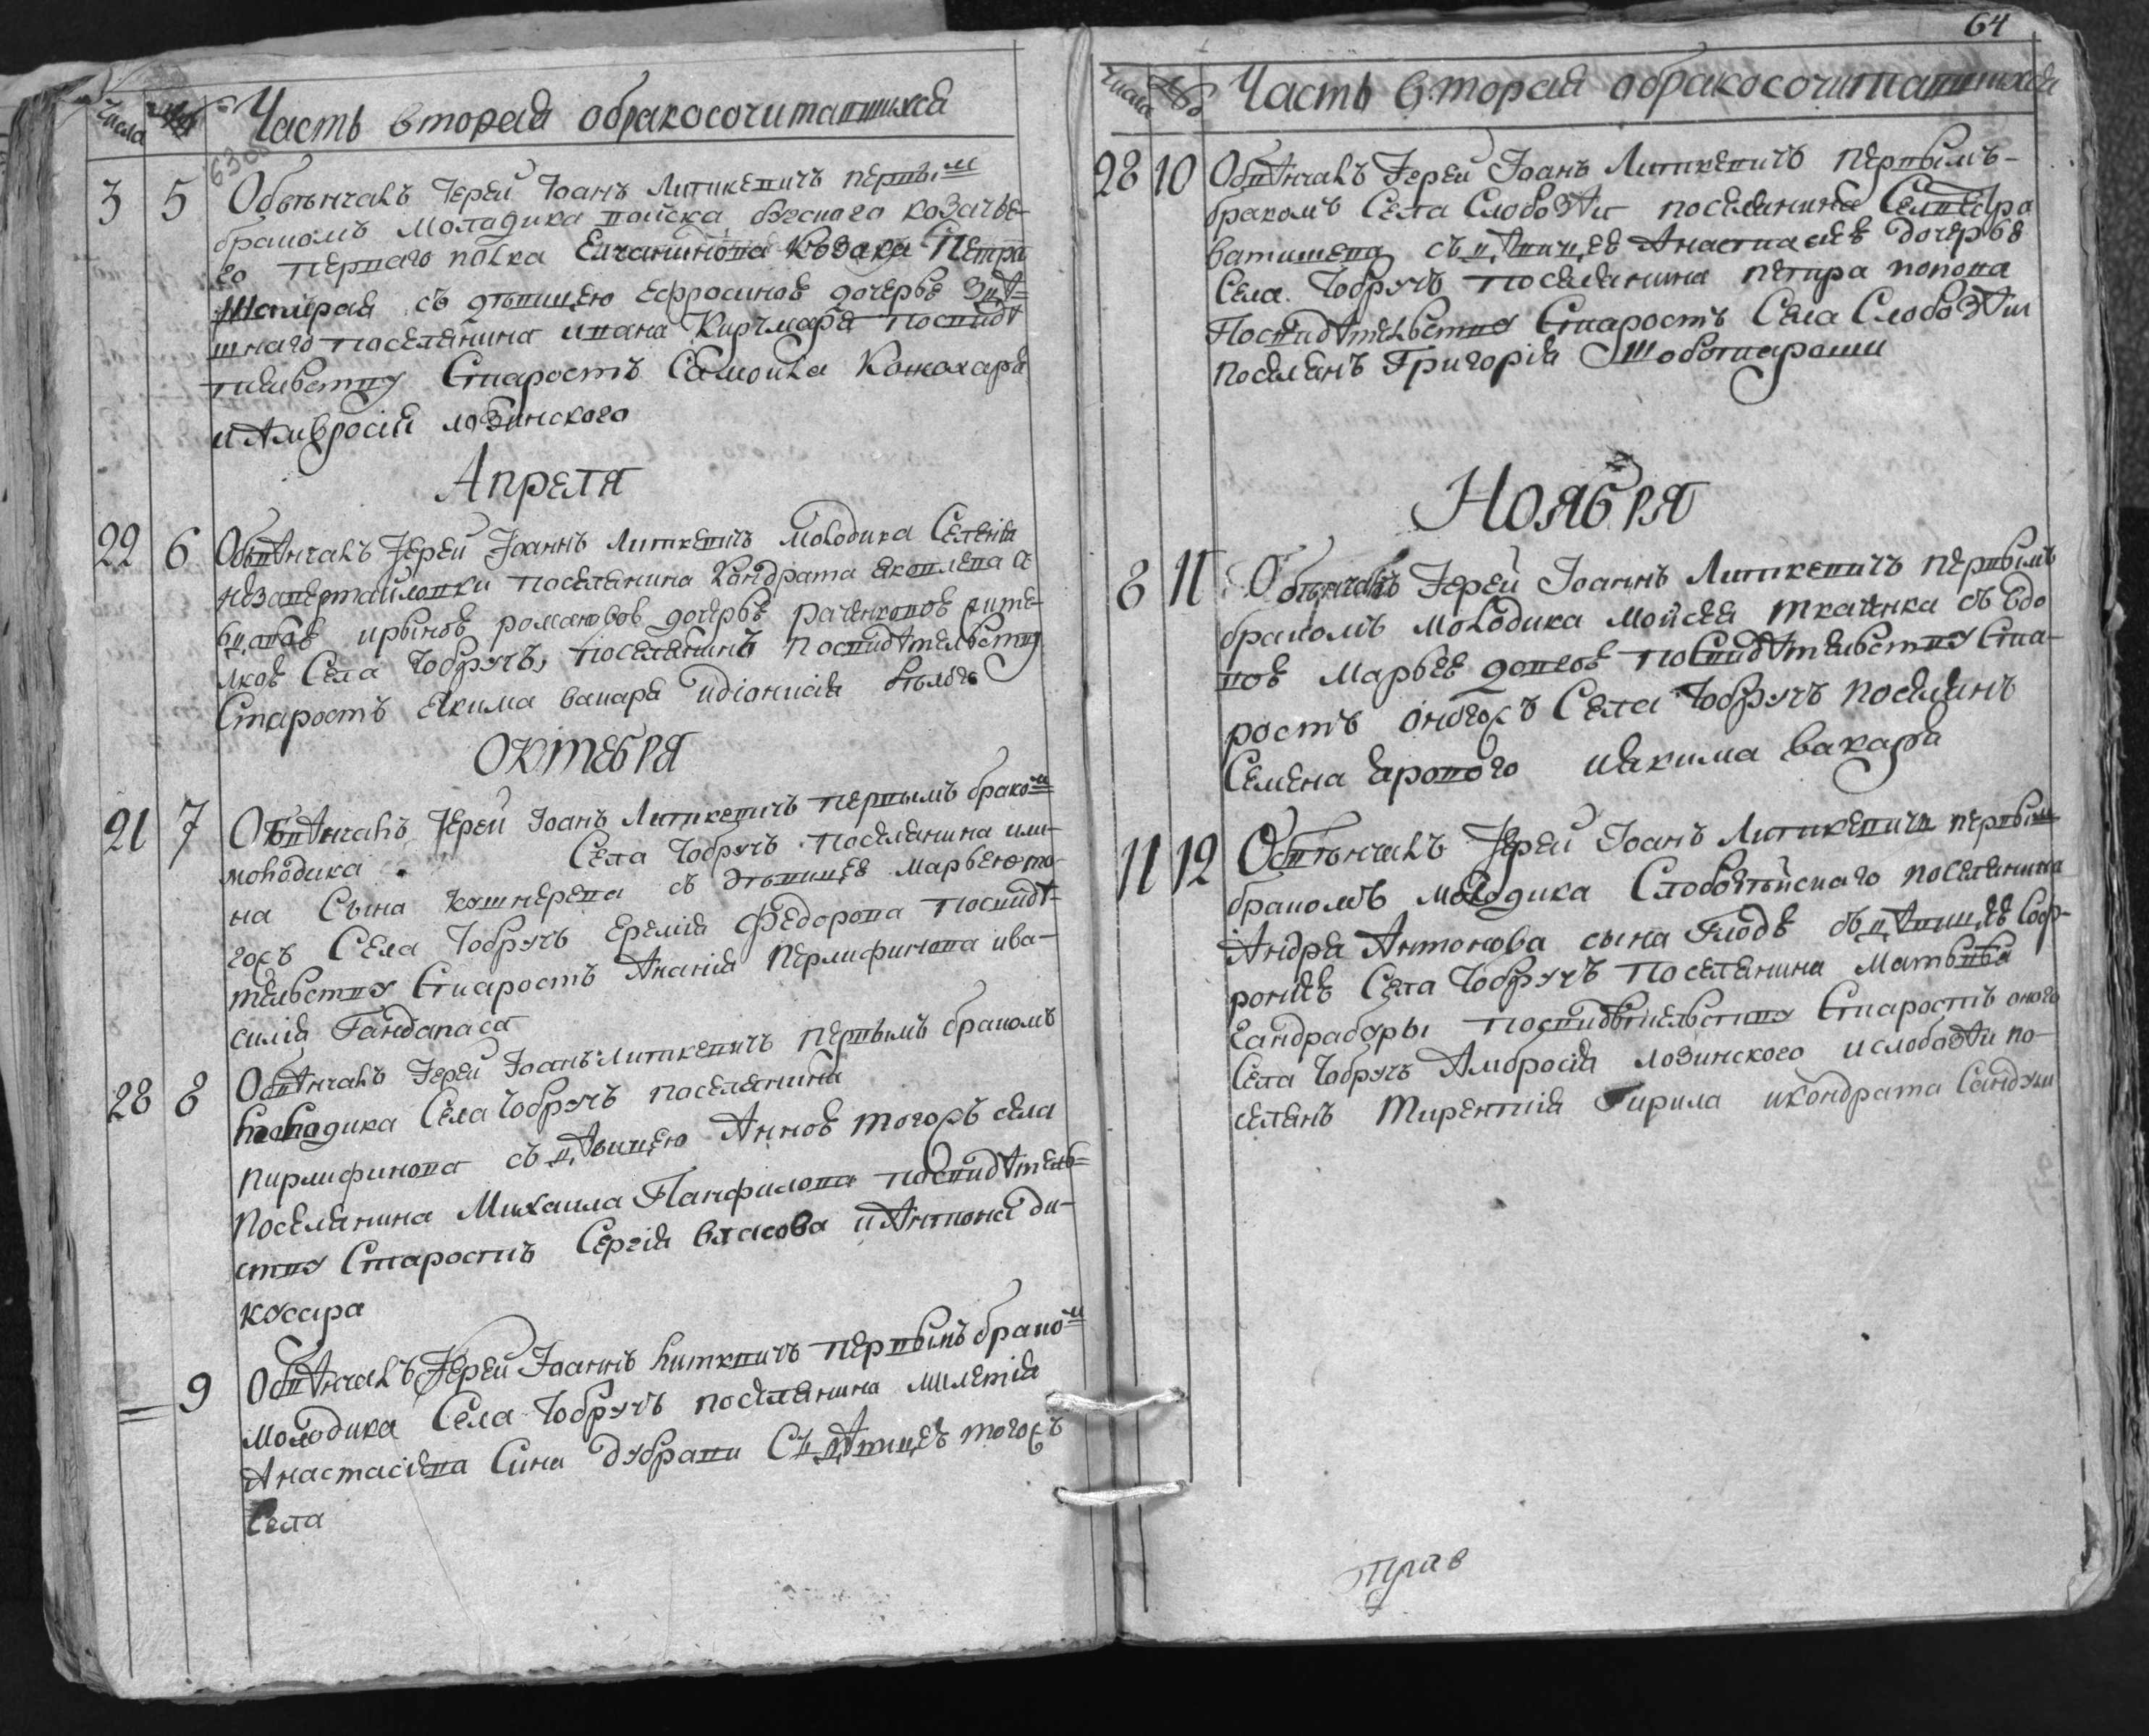 Числа
Часть вторая обракосочитавшихся
3 5 Обвѣнчалъ Іерей Іоанъ Литкевичъ первым
бракомъ Моладика войска бугскаго козачье-
го перваго полка Елчанинова козака Петра
съ дѣвицею ефросиновъ дочерье здѣ=
шнаго поселянина ивана Кирчмаря посвидѣ
тельству Старостъ Самойла Кожохаря
и Амвросія лозинского
Апреля
22 6 Обвѣнчалъ Іерей Іоаннъ Литкевичъ молодика Селенія
незавертайловки поселянина Кондрата яковлева съ
вдовов ириновъ романовов дочерье раченковов жите-
лков Села Чобручъ, поселянинъ посвидѣтельству
Старостъ якима вакаря идіонисія
Октебря
21 7 Обвѣнчалъ Іерей Іоанъ Литкевичъ первымъ браком
молодика Села Чобручъ поселянина или-
на Сына кушнерева съ дѣвицев марьею то-
гожъ Села Чобручъ еремія Федорова посвидѣ-
тельству Старостъ Ананія Перлифинова ива-
силія Гандапаса
28 8 Обвѣнчалъ Іерей Іоанъ Литкевичъ первымъ бракомъ
молодика Села Чобручъ поселянина
пирлифинова съ дѣвицею Анновъ тогожъ села
поселянина Михаила Панфилова посвидѣтель=
ству Старостъ Сергія власова и Антона ди-
кусара
9 Обвѣнчалъ Іерей Іоаннъ Литквичъ первымъ браком
молодика Села Чобручъ поселянина милетія
Анастасіева Сина дубрави Съ дѣвицевъ тогожъ
Села
64
Числа
Часть вторая обракосочитавшихся
28 10 Обвѣнчалъ Іерей Іоанъ Литкевичъ первымъ-
бракомъ Села Слободзѣи поселянина
съ дѣвицев Анастасиевъ дочерье
Села Чобручъ поселянина петра попова
Посвидѣтельству Старостъ Села Слободзѣи
поселянъ Григорія
Ноября
8 11 Обвѣнчалъ Іерей Іоаннъ Литкевичъ первымъ
бракомъ молодика мойсея ткаченка съ вдо
вов Марьев посвидѣтельству Ста-
ростъ оногожъ Села Чобручъ поселянъ
Семена ярового иякима вакаря
11 12 Обвѣнчалъ Іерей Іоанъ Литкевичъ первым
бракомъ молодика Слободзѣйскаго поселянина
Андрея Антонова сына Глодѣ съ дѣвицевъ Соф-
рониевъ Села Чобручъ поселянина Матвѣя
гандрабуры посвидѣтельству Старостъ оного
Села Чобручъ Амбросія лозинского ислободзѣи по-
селянъ Тирентия Гирила икондрата Сандул